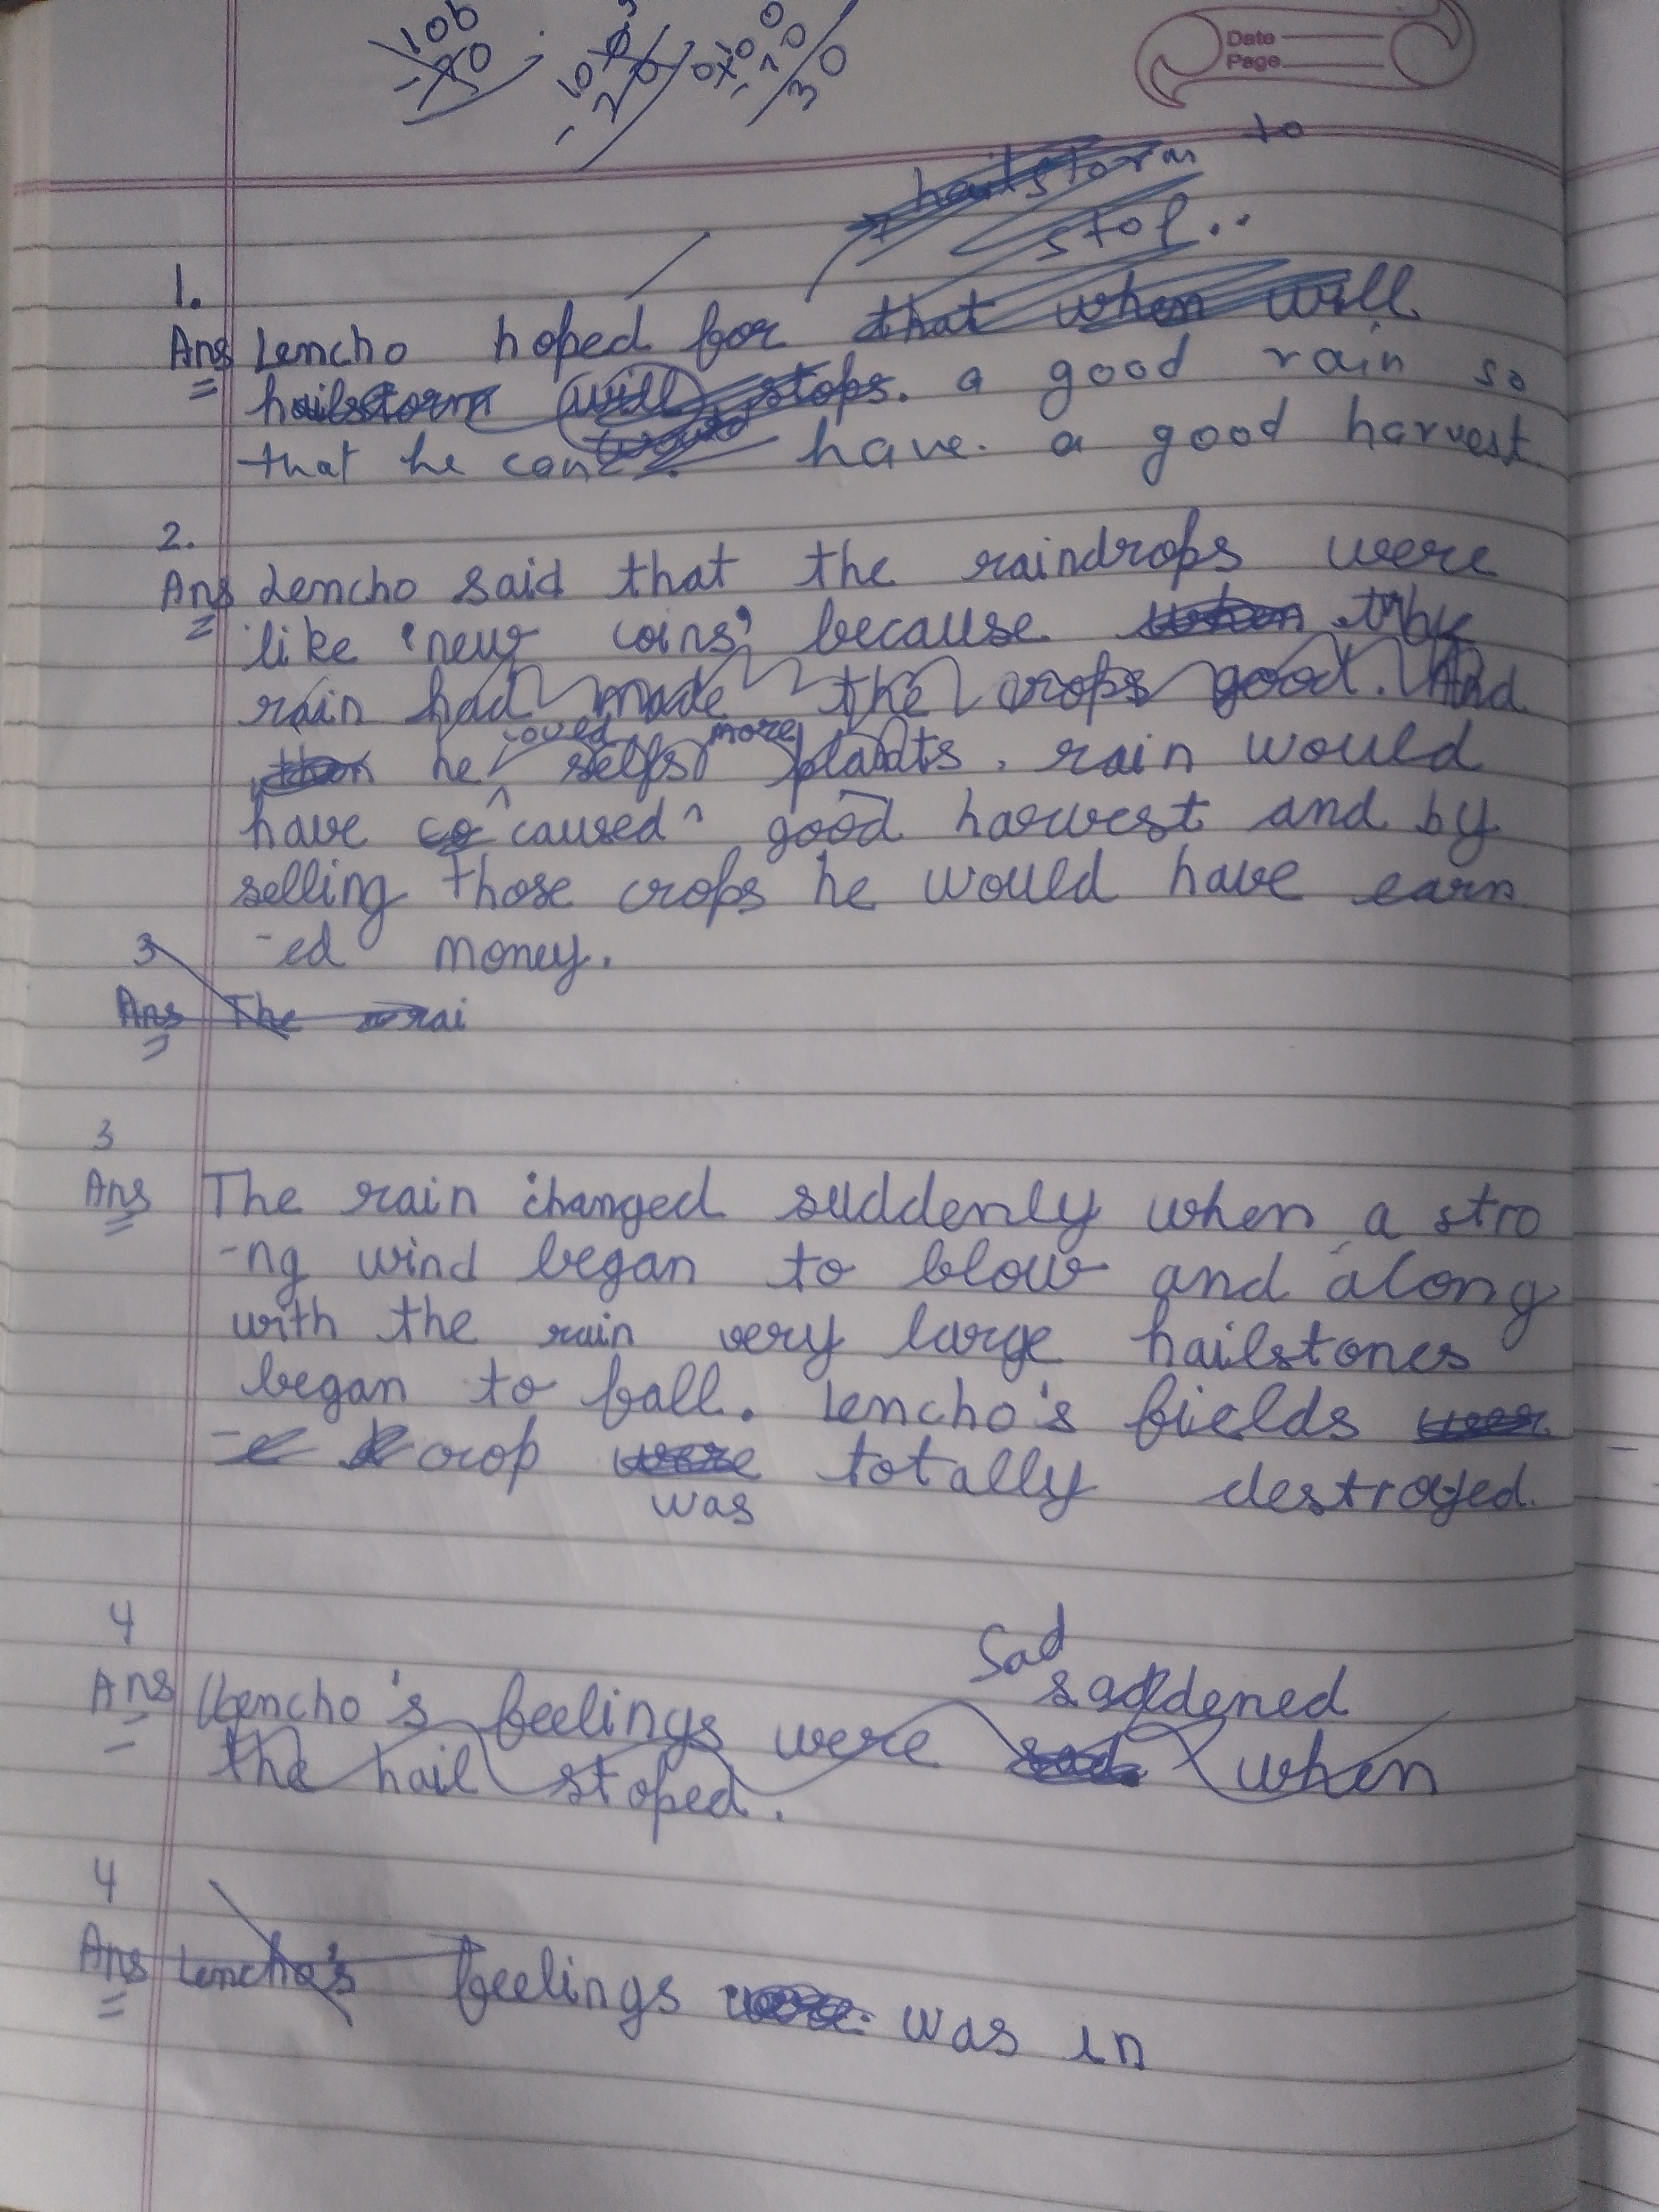 Date
Page
100
hailstorm to
stop..
1.
Ans Lencho hoped for that when will
hailstorm will stops. a good rain so
that he can have. a good harvest
2.
Ans Lencho said that the raindrops were
like 'new coins' because the
rain had made the crops good. And
then he selfs more plants. rain would
have co caused good harvest and by
selling those crops he would have earn
-ed money.
3
Ans The rai
3
Ans The rain changed suddenly when a stro
-ng wind began to blow and along
with the rain very large hailstones
began to fall. Lencho's fields wer
-e crop were totally destroyed.
was
4
Sad
saddened
Ans Lencho's feelings were sad. when
the hail stoped.
4
Ans Lencho's feelings were. was in